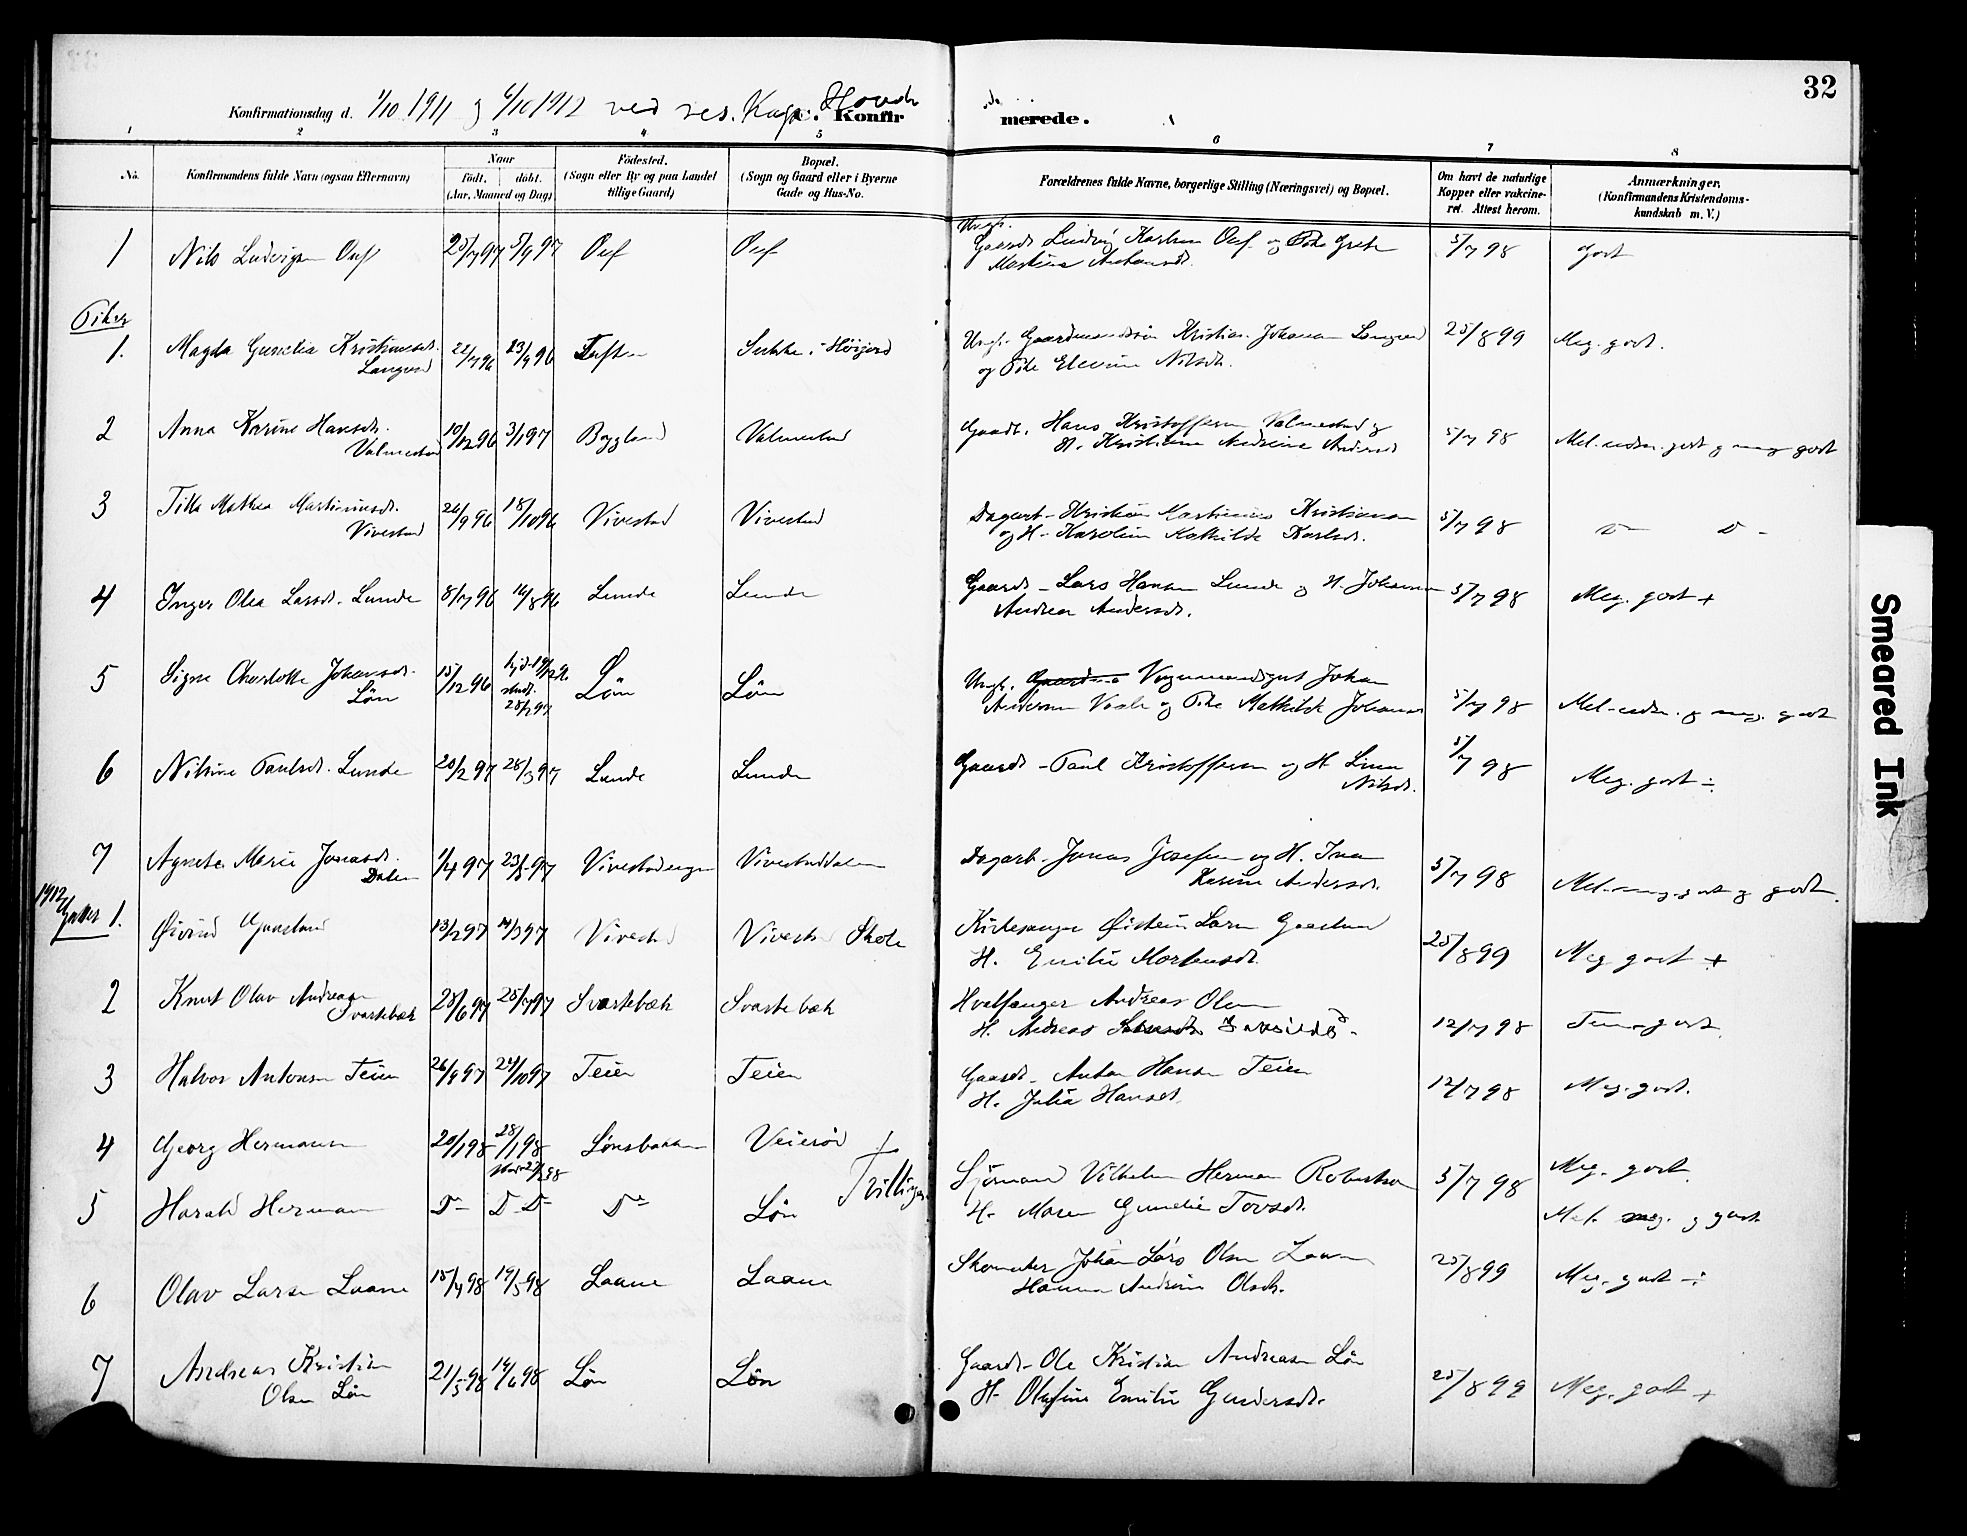 32
Konfirmationsdag d. 1/10 1911 og 6/10 1912 ved res. Kap. Konfir merede.
1 2 3 4 5 6 7 8
No. Konfirmandens fulde Navn (ogsaa Efternavn) Naar födt. döbt. (Aar, Maaned og Dag) Födested. (Sogn eller By og paa Landet tillige Gaard) Bopæl. (Sogn og Gaard eller i Byerne Gade og Hus-No. Forældrenes fulde Navne, borgerlige Stilling (Næringsvei) og Bopæl. Om havt de naturlige Kopper eller vakcineret. Attest herom. Anmærkninger. (Konfirmandens Kristendomskundskab m. V.)
1 Nils Ludvigsen 25/7 97 5/9 97 5/7 98 Godt
Martine Antonsdt.
Piker
1. Magda Gunelia Kristiansdt. 22/7 96 23/9 96 Tuften Ungk. Gaardmandssøn Kristian Johansen Langved 25/8 99 Meg. godt.
Langved og Pike Elevine Nilsdt.
2 Anna Karine Hansdt. 10/12 96 3/1 97 Bøgland Valmestad Gaardb. Hans Kristoffersen Valmestad og 5/7 98 Mel. udm. godt og meg godt
Valmestad H. Kristiane Andrine Andersdt
3 Tilla Mathea Martiniusdt. 26/9 96 18/10 96 Vivestad Vivestad Dagarb. Kristian Martinius Kristiansen 5/7 98 D D
Vivestad og H. Karoline Mathilde Karlsdt.
4 Inger Olea Larsdt. Lunde 8/7 96 16/8 96 Lunde Lunde Gaardb. Lars Hansen Lunde og H. Johanne 5/7 98 Meg. godt +
Andrea Andersdt.
5 Signe Charlotte Johansdt. 15/12 96 hjd. 19/12 96 Løn Løn Ungk. Johan
Løn stadf. 28/2 97 Andersen og Pike Mathilde Johansdt 5/7 98 Mel. udm. og meg. godt
6 Nilsine Paulsdt. Lunde 20/2 97 28/3 97 Lunde Lunde Gaardb. Paul Kristoffersen og H. Lina 5/7 98 Meg. godt ÷
Nilsdt.
7 Agnete Marie Jonasdt. 1/4 97 23/5 97 Vivestadengen Vivestaddalen Dagarb. Jonas Josefsen og H. Ina 5/7 98 Mel. meg. godt og godt.
Dalen Karine Andersdt.
1912 Gutter 1. Øivind Gaasland 13/2 97 Vivestad Vivestad Skole Kirkesanger Øistein Larsen Gaasland 25/8 99 Meg godt +
H. Emilie Mortensdt.
2 Knut Olav Andreasen 25/6 97 25/7 97 Svartebæk Svartebæk Hvalfanger Andreas Olsen 12/7 98 godt.
Svartebæk H. Andrea
3 Halvor Antonsen Teien 26/9 97 24/10 97 Teien Teien Gaardb. Anton Hansen Teien 12/7 98 Meg. godt.
H. Julia Hansdt.
4 Georg Hermansen 20/1 98 28/1 98 Lønsbakken Veierød Tvillinger Sjømand Vilhelm Herman Robertsen 5/7 98 Meg. godt.
5 Harald Hermansen Do D D Do Løn H. Maren Gunelie Torsdt. Mel. meg. og godt
6 Olav Larsen Laane 15/4 98 19/5 98 Laane Laane Skomaker Johan Lars Olsen Laane 25/8 99 Meg. godt ÷
Hanna Andrine Olsdt.
7 Andreas Kristian 21/5 98 19/6 98 Løn Løn Gaardb. Ole Kristian Andreasen Løn 25/8 99 Meg. godt +
Olsen Løn H. Olufine Emilie Gundersdt.
Smeared Ink